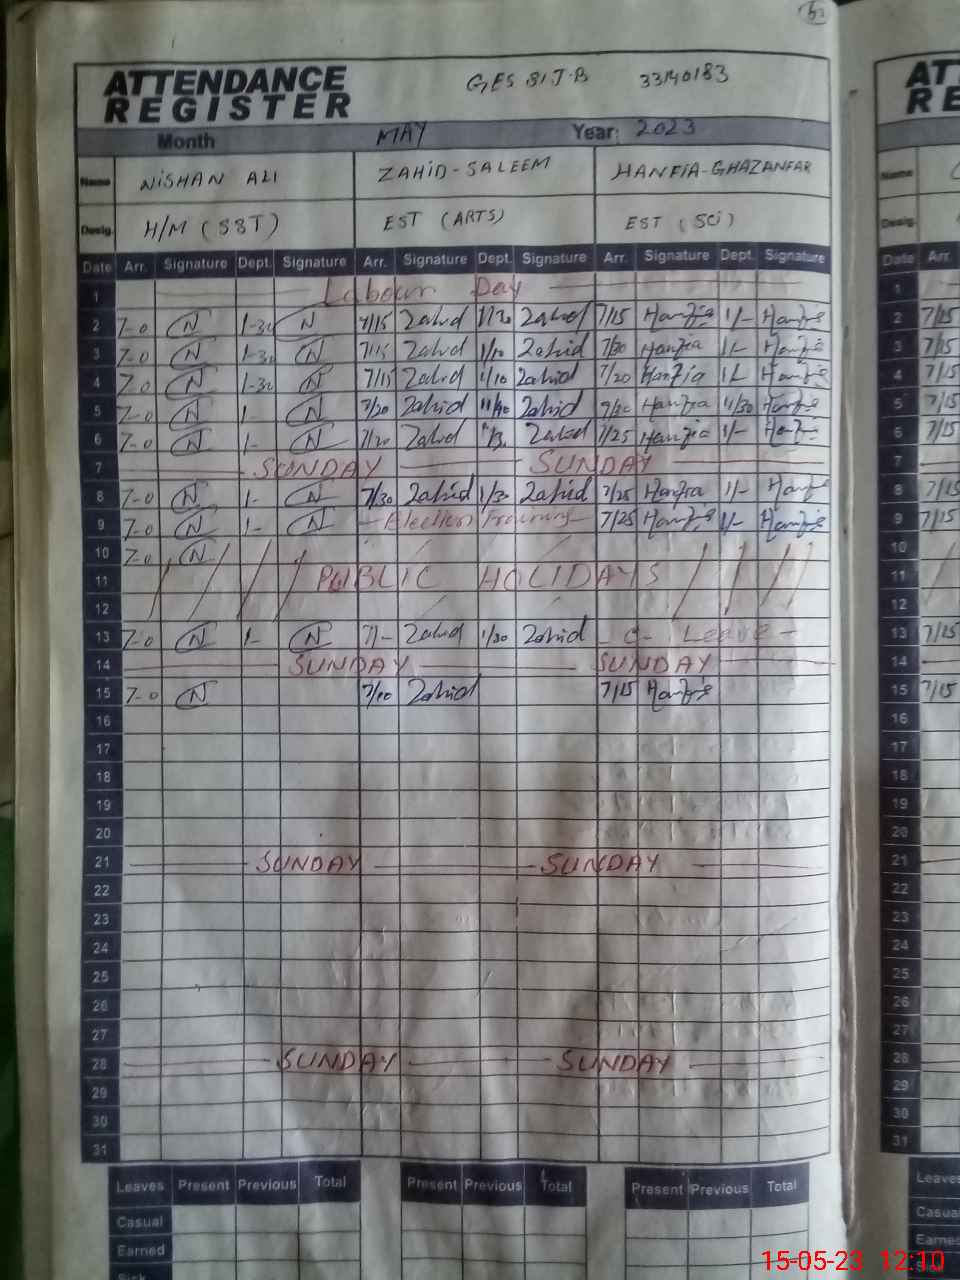 ATTENDANCE
REGISTER
GES 81 J-B 33140183
Month MAY Year: 2023
Name NISHAN ALI ZAHID-SALEEM HANFIA-GHAZANFAR
Desig. H/M (SST) EST (ARTS) EST (SCI)
Date Arr. Signature Dept. Signature Arr. Signature Dept. Signature Arr. Signature Dept. Signature Date Arr.
1 Labour Day 1
2 7-0 N 1-30 N 7/15 Zahid 1/30 Zahid 7/15 Hanfia 1/- Hanfia 2 7/15
3 7-0 N 1-30 N 7/15 Zahid 1/10 Zahid 7/30 Hanfia 1/- Hanfia 3 7/15
4 7-0 N 1-30 N 7/15 Zahid 1/10 Zahid 7/20 Hanfia 1/- Hanfia 4 7/15
5 7-0 N 1- N 7/20 Zahid Zahid Hanfia 11/30 Hanfia 5 7/15
6 7-0 N 1- N 7/20 Zahid Zahid 7/25 Hanfia 1/- Hanfia 6 7/15
7 SUNDAY SUNDAY 7
8 7-0 N 1- N 7/30 Zahid 1/30 Zahid 7/25 Hanfia 1/- Hanfia 8 7/15
9 7-0 N 1- N Election Training 7/25 Hanfia 1/- Hanfia 9 7/15
10 7-0 N 10
11 PUBLIC HOLIDAYS 11
12 12
13 7-0 N 1- N 7/- Zahid 1/30 Zahid C- Leave 13 7/15
14 SUNDAY SUNDAY 14
15 7-0 N 7/00 Zahid 7/15 Hanfia 15 7/15
16 16
17 17
18 18
19 19
20 20
21 SUNDAY SUNDAY 21
22 22
23 23
24 24
25 25
26 26
27 27
28 SUNDAY SUNDAY 28
29 29
30 30
31 31
Leaves Present Previous Total Present Previous Total Present Previous Total Leaves
Casual Casual
Earned Earned
Sick Sick
15-05-23 12:10